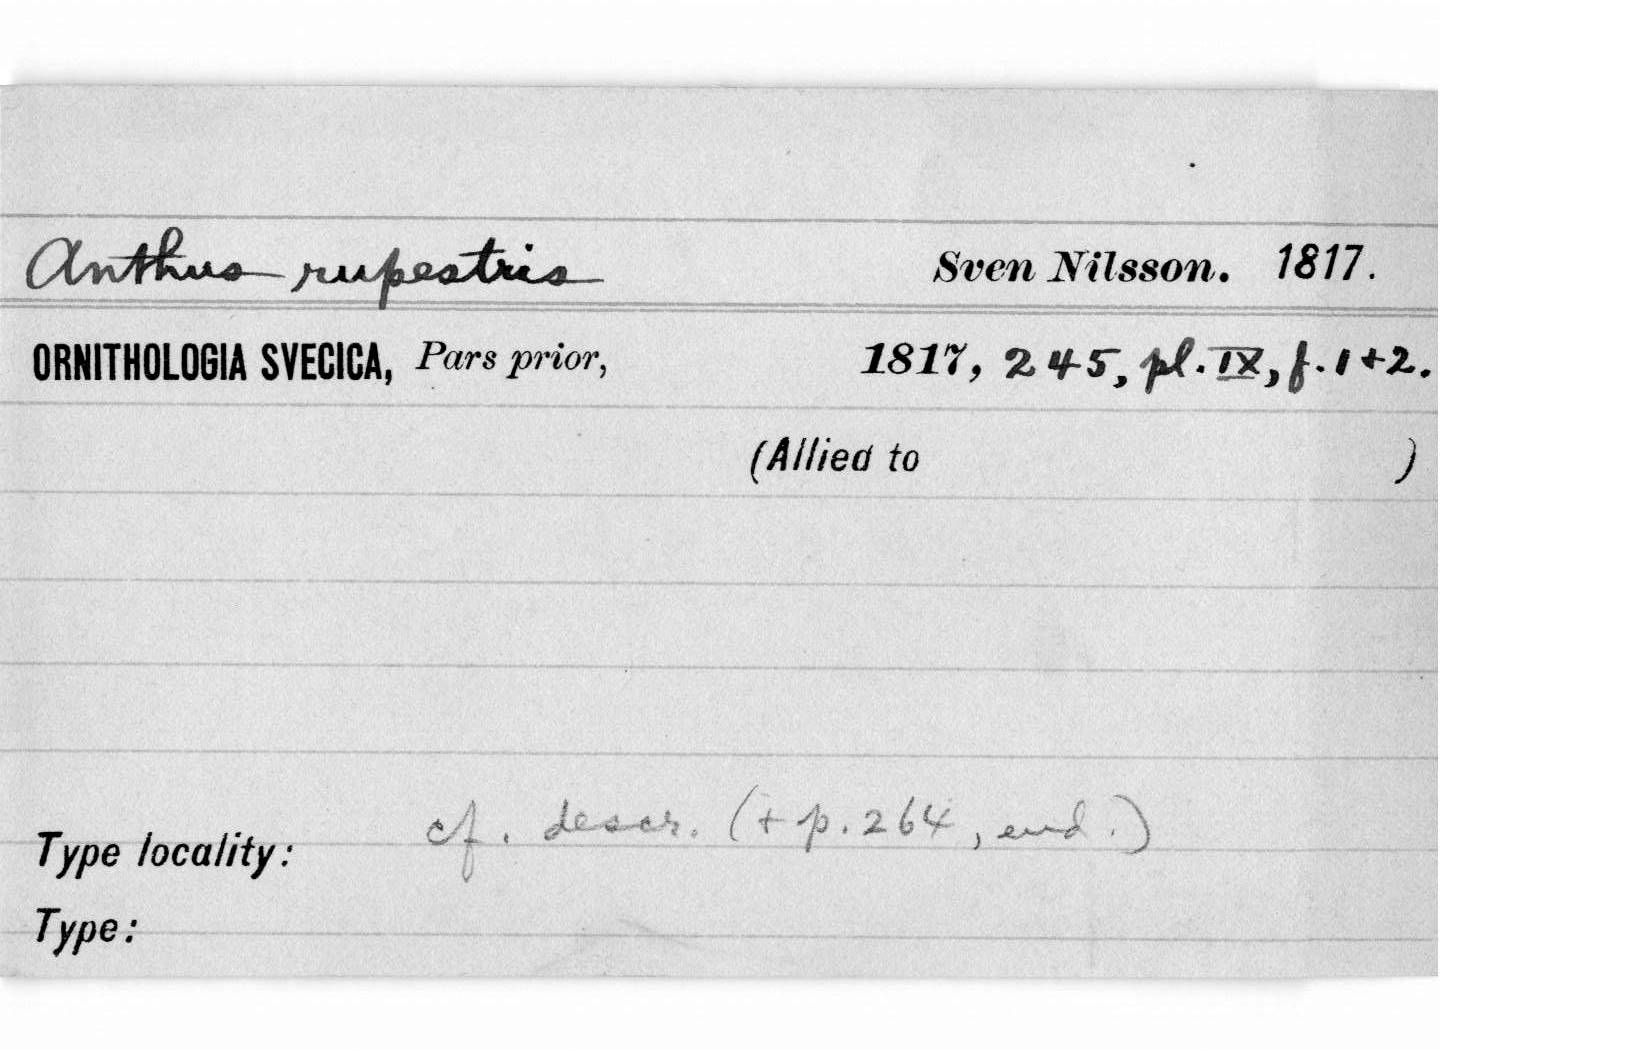 Anthus rupestris Sven Nilsson. 1817.
ORNITHOLOGIA SVECICA, Pars prior, 1817, 245, pl. IX, f. 1 + 2.
(Allied to )
Type locality: cf. descr. (+ p. 264, end.)
Type: